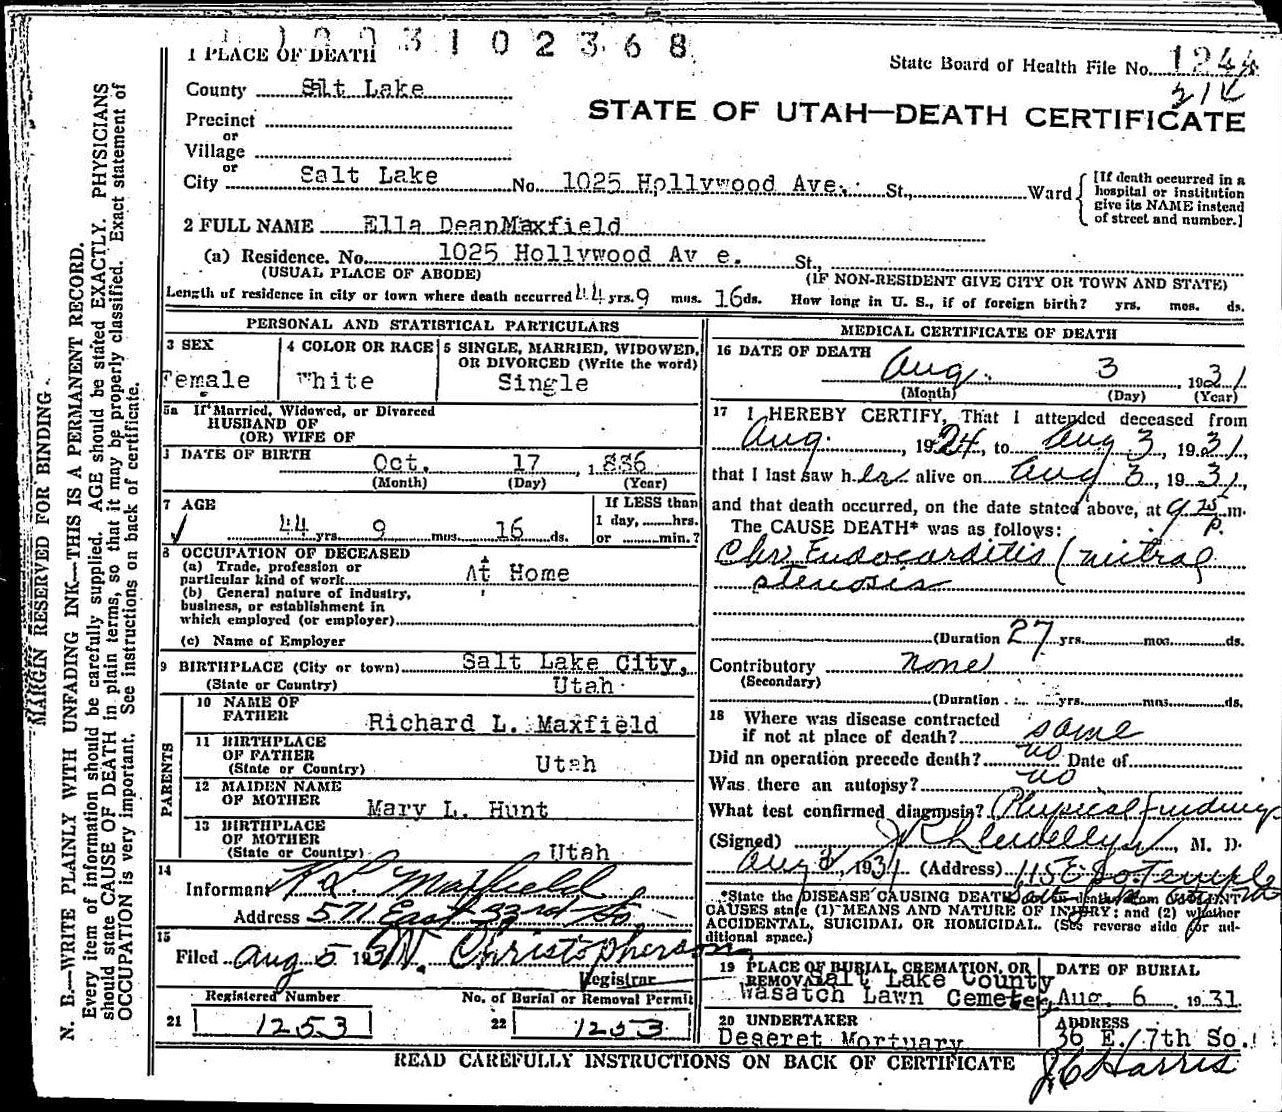 3102368
1 PLACE OF DEATH
State Board of Health File No. 1244
214
County Salt Lake
STATE OF UTAH—DEATH CERTIFICATE
Precinct
or
Village
or
City Salt Lake No. 1025 Hollywood Ave. St., Ward
[If death occurred in a
hospital or institution
give its NAME instead
of street and number.]
2 FULL NAME Ella DeanMaxfield
(a) Residence. No. 1025 Hollywood Av e. St.,
(USUAL PLACE OF ABODE) (IF NON-RESIDENT GIVE CITY OR TOWN AND STATE)
Length of residence in city or town where death occurred 44 yrs. 9 mos. 16 ds. How long in U. S., if of foreign birth? yrs. mos. ds.
PERSONAL AND STATISTICAL PARTICULARS
3 SEX
Female
4 COLOR OR RACE
White
5 SINGLE, MARRIED, WIDOWED,
OR DIVORCED (Write the word)
Single
5a If Married, Widowed, or Divorced
HUSBAND OF
(OR) WIFE OF
DATE OF BIRTH Oct. 17, 1886
(Month) (Day) (Year)
7 AGE
44 yrs. 9 mos. 16 ds.
If LESS than
1 day, hrs.
or min.?
8 OCCUPATION OF DECEASED
(a) Trade, profession or
particular kind of work At Home
(b) General nature of industry,
business, or establishment in
which employed (or employer)
(c) Name of Employer
9 BIRTHPLACE (City or town) Salt Lake City,
(State or Country) Utah
PARENTS
10 NAME OF
FATHER Richard L. Maxfield
11 BIRTHPLACE
OF FATHER
(State or Country) Utah
12 MAIDEN NAME
OF MOTHER Mary L. Hunt
13 BIRTHPLACE
OF MOTHER
(State or Country) Utah
14
Informant R L Maxfield
Address 571 East 33rd So
15
Filed Aug 5 193 Christopherson
Registrar
Registered Number
21 1253
No. of Burial or Removal Permit
22 1253
MEDICAL CERTIFICATE OF DEATH
16 DATE OF DEATH
Aug. 3, 1931
(Month) (Day) (Year)
17 I HEREBY CERTIFY, That I attended deceased from
Aug. , 1924, to Aug 3, 1931,
that I last saw her alive on Aug 3, 1931,
and that death occurred, on the date stated above, at 9 25 P. m.
The CAUSE DEATH* was as follows:
Chr. Endocarditis (mitral
stenosis
(Duration 27 yrs. mos. ds.
Contributory none
(Secondary)
(Duration yrs. mos. ds.
18 Where was disease contracted
if not at place of death? same
Did an operation precede death? no Date of
Was there an autopsy? no
What test confirmed diagnosis? Physical findings
(Signed) Llewellyn, M. D.
Aug 1931 (Address) 115 E So. Temple
*State the DISEASE CAUSING DEATH
CAUSES state (1) MEANS AND NATURE OF INJURY; and (2) whether
ACCIDENTAL, SUICIDAL OR HOMICIDAL. (See reverse side for ad-
ditional space.)
19 PLACE OF BURIAL, CREMATION, OR
REMOVAL Salt Lake County
Wasatch Lawn Cemetery
DATE OF BURIAL
Aug. 6 1931
20 UNDERTAKER
Deseret Mortuary
ADDRESS
36 E. 7th So.
J C Harris
READ CAREFULLY INSTRUCTIONS ON BACK OF CERTIFICATE
MARGIN RESERVED FOR BINDING
N. B.—WRITE PLAINLY WITH UNFADING INK—THIS IS A PERMANENT RECORD.
Every item of information should be carefully supplied. AGE should be stated EXACTLY. PHYSICIANS
should state CAUSE OF DEATH in plain terms, so that it may be properly classified. Exact statement of
OCCUPATION is very important. See instructions on back of certificate.